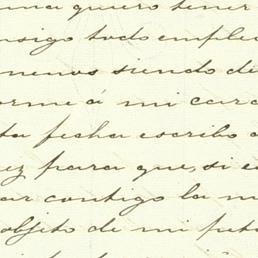 una quiero tener
nsigo todo emplea
menos siendo de
orme á mi cara
ta fecha escribo a
ez para que, si es
ar contigo la m
objeto de mi peti